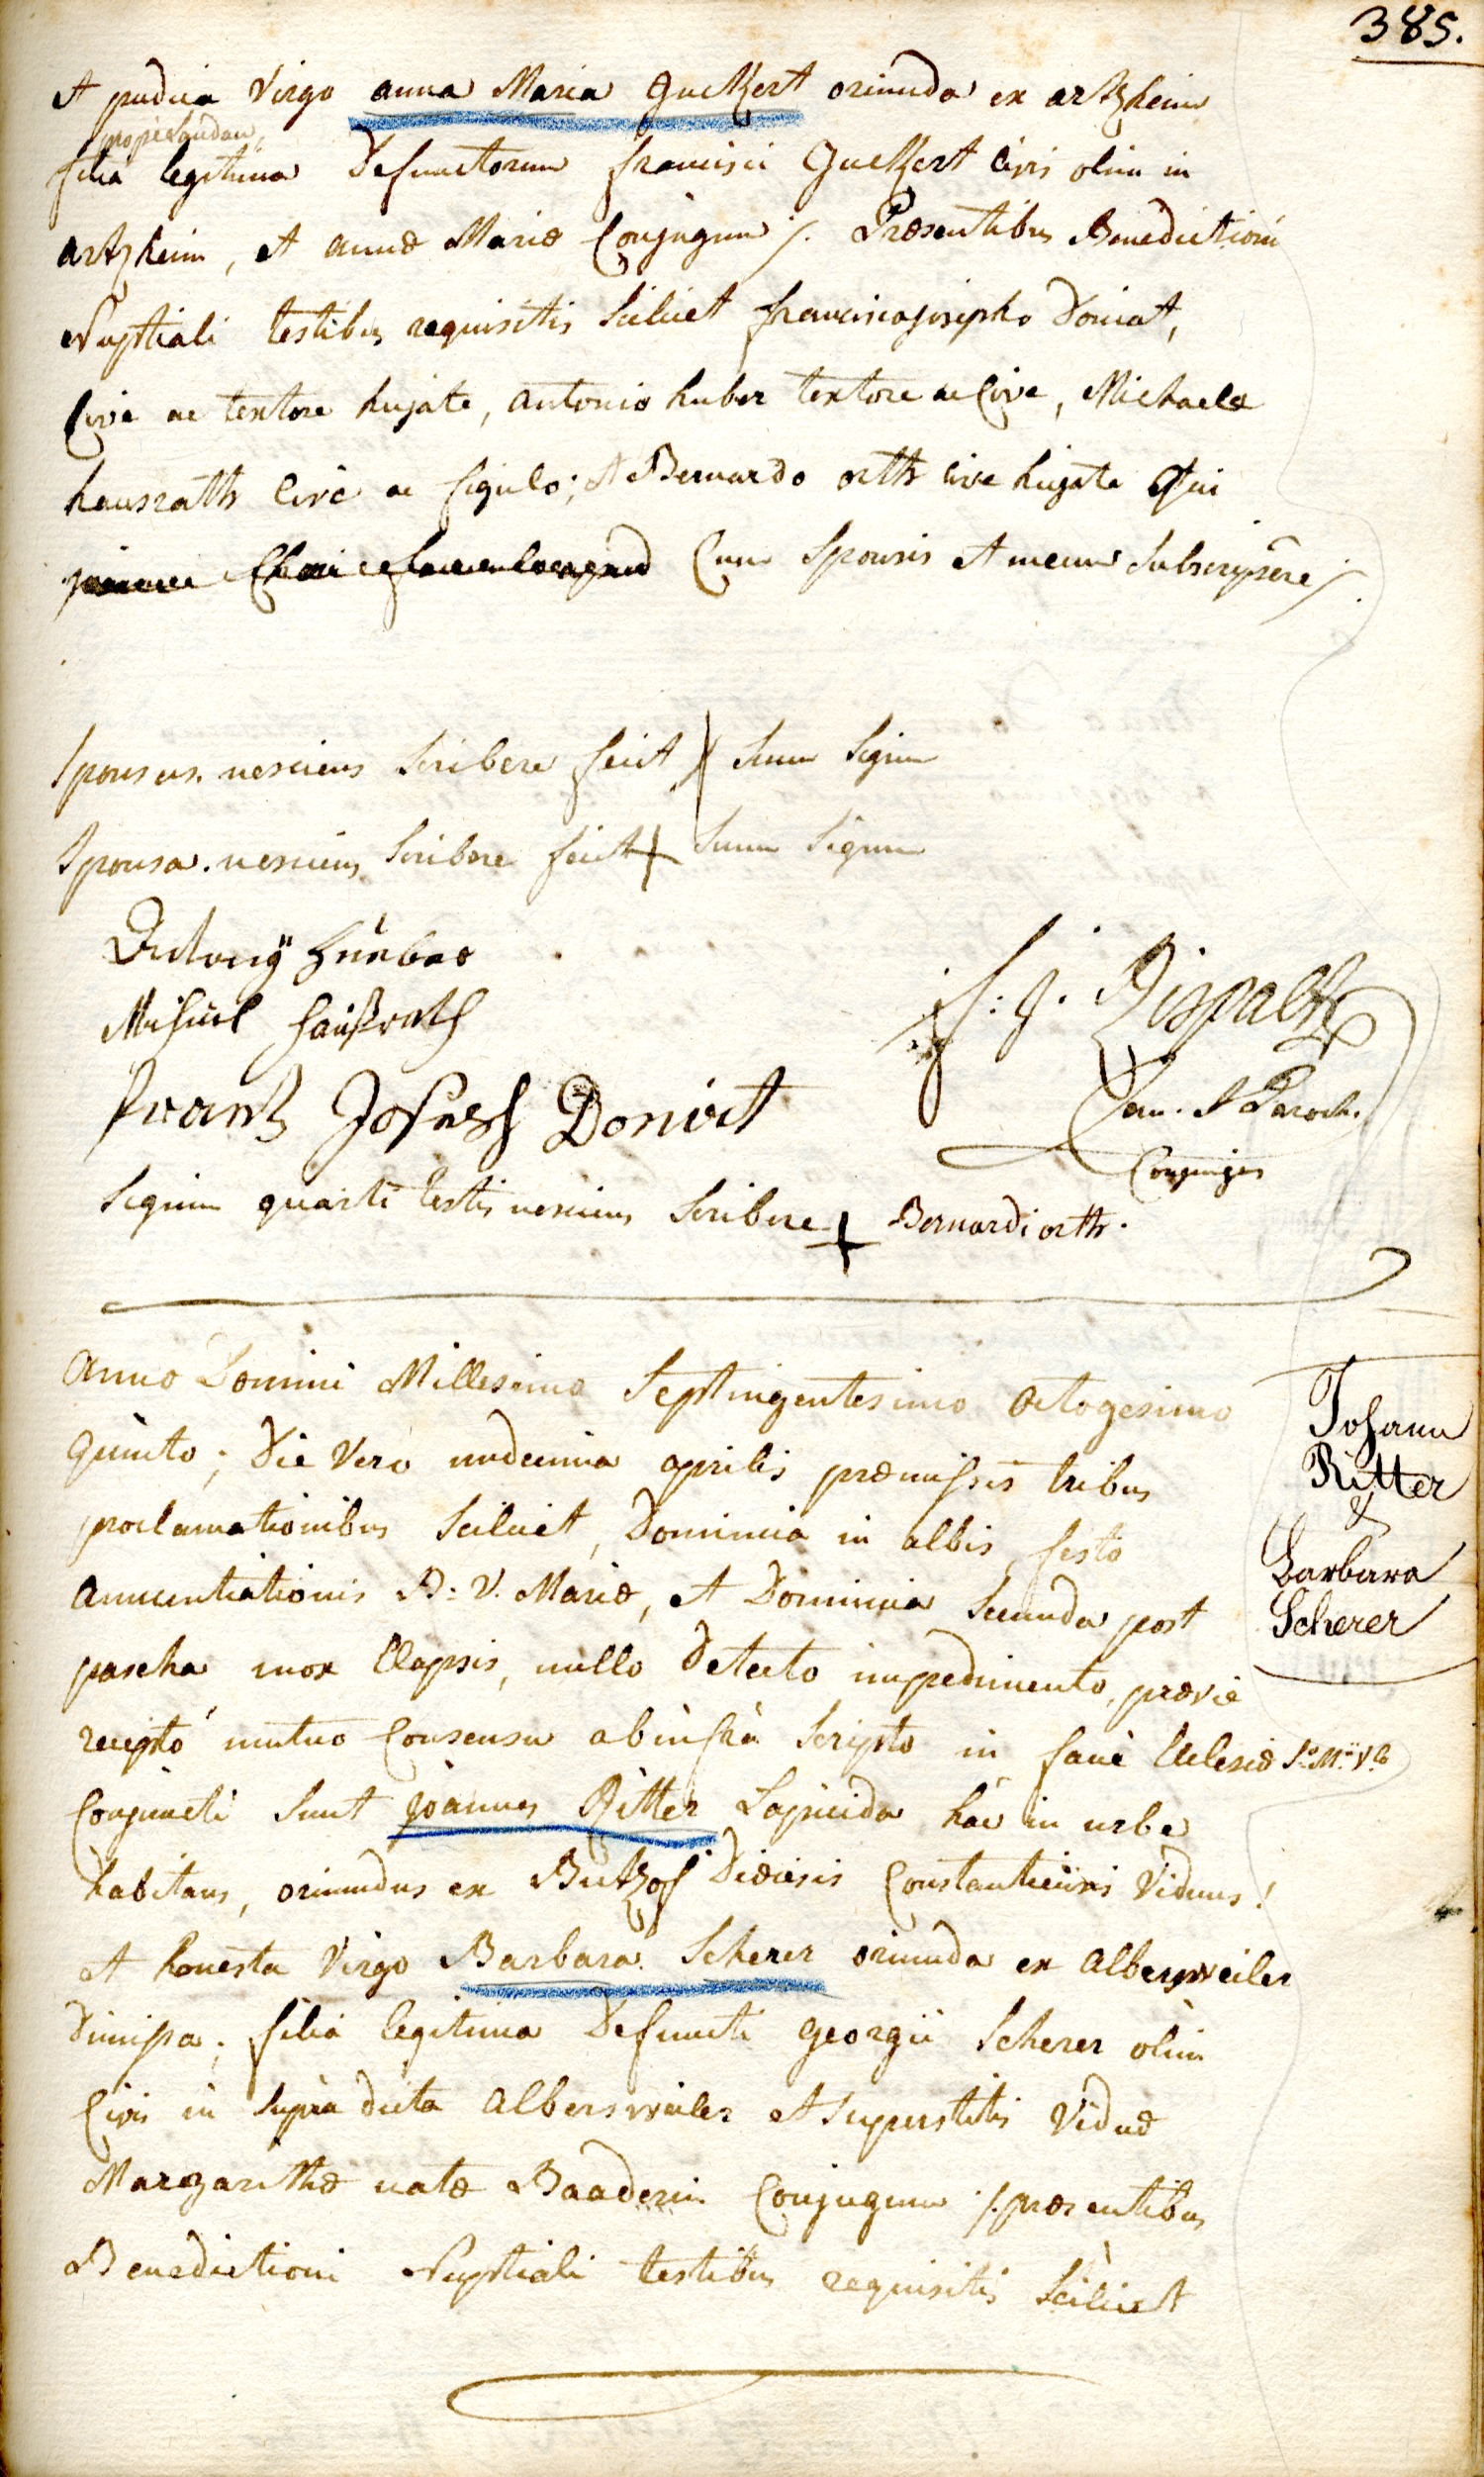 385.
et pudica Virgo anna Maria Guckert oriunda ex artzheim
prope Landau,
filia legitima Defunctorum francisci Guckert civis olim in
artzheim, et annæ Mariæ Conjugum /. Præsentibus Benedictioni
Nuptiali testibus requisitis scilicet francisco josepho Doniat,
Cive ac textore hujate, antonio huber textore ac Cive, Michaele
hausrath Cive ac figulo; et Bernardo orth cive hujate Qui
Cum Sponsis et mecum Subscripsêre /.
Sponsus nesciens Scribere fecit + Suum Signum
Sponsa nesciens Scribere fecit + Suum Signum
Antony Hueber
Michael Haußrath
Frantz Joseph Doniat
f: j. Rispalt
Can. & Paroch.
Conjungens
Signum quarti testis nesciens Scribere + Bernardi orth.
Anno Domini Millesimo Septingentesimo octogesimo
Quinto; Die Vero undecima aprilis præmissis tribus
proclamationibus Scilicet, Dominica in albis, festo
Annuntiationis B: V. Mariæ, et Dominica Secunda post
pascha mox Elapsis, nullo Detecto impedimento, prævie
recepto mutuo Consensu ab infrà Scripto in facie Ecclesiæ
Conjuncti Sunt joannes Ritter Lapicida hâc in urbe
habitans, oriundus ex Butzhof Diœcesis Constantiensis Viduus!
et honesta Virgo Barbara Scherer oriunda ex Albersweiler
Dimissa; filia legitima Defuncti georgii Scherer olim
Civis in Supra dicta Albersweiler et superstitis Viduæ
Margarithæ natæ Baaderin Conjugum /. præsentibus
Benedictioni Nuptiali testibus requisitis Scilicet
Johann
Ritter
&
Barbara
Scherer